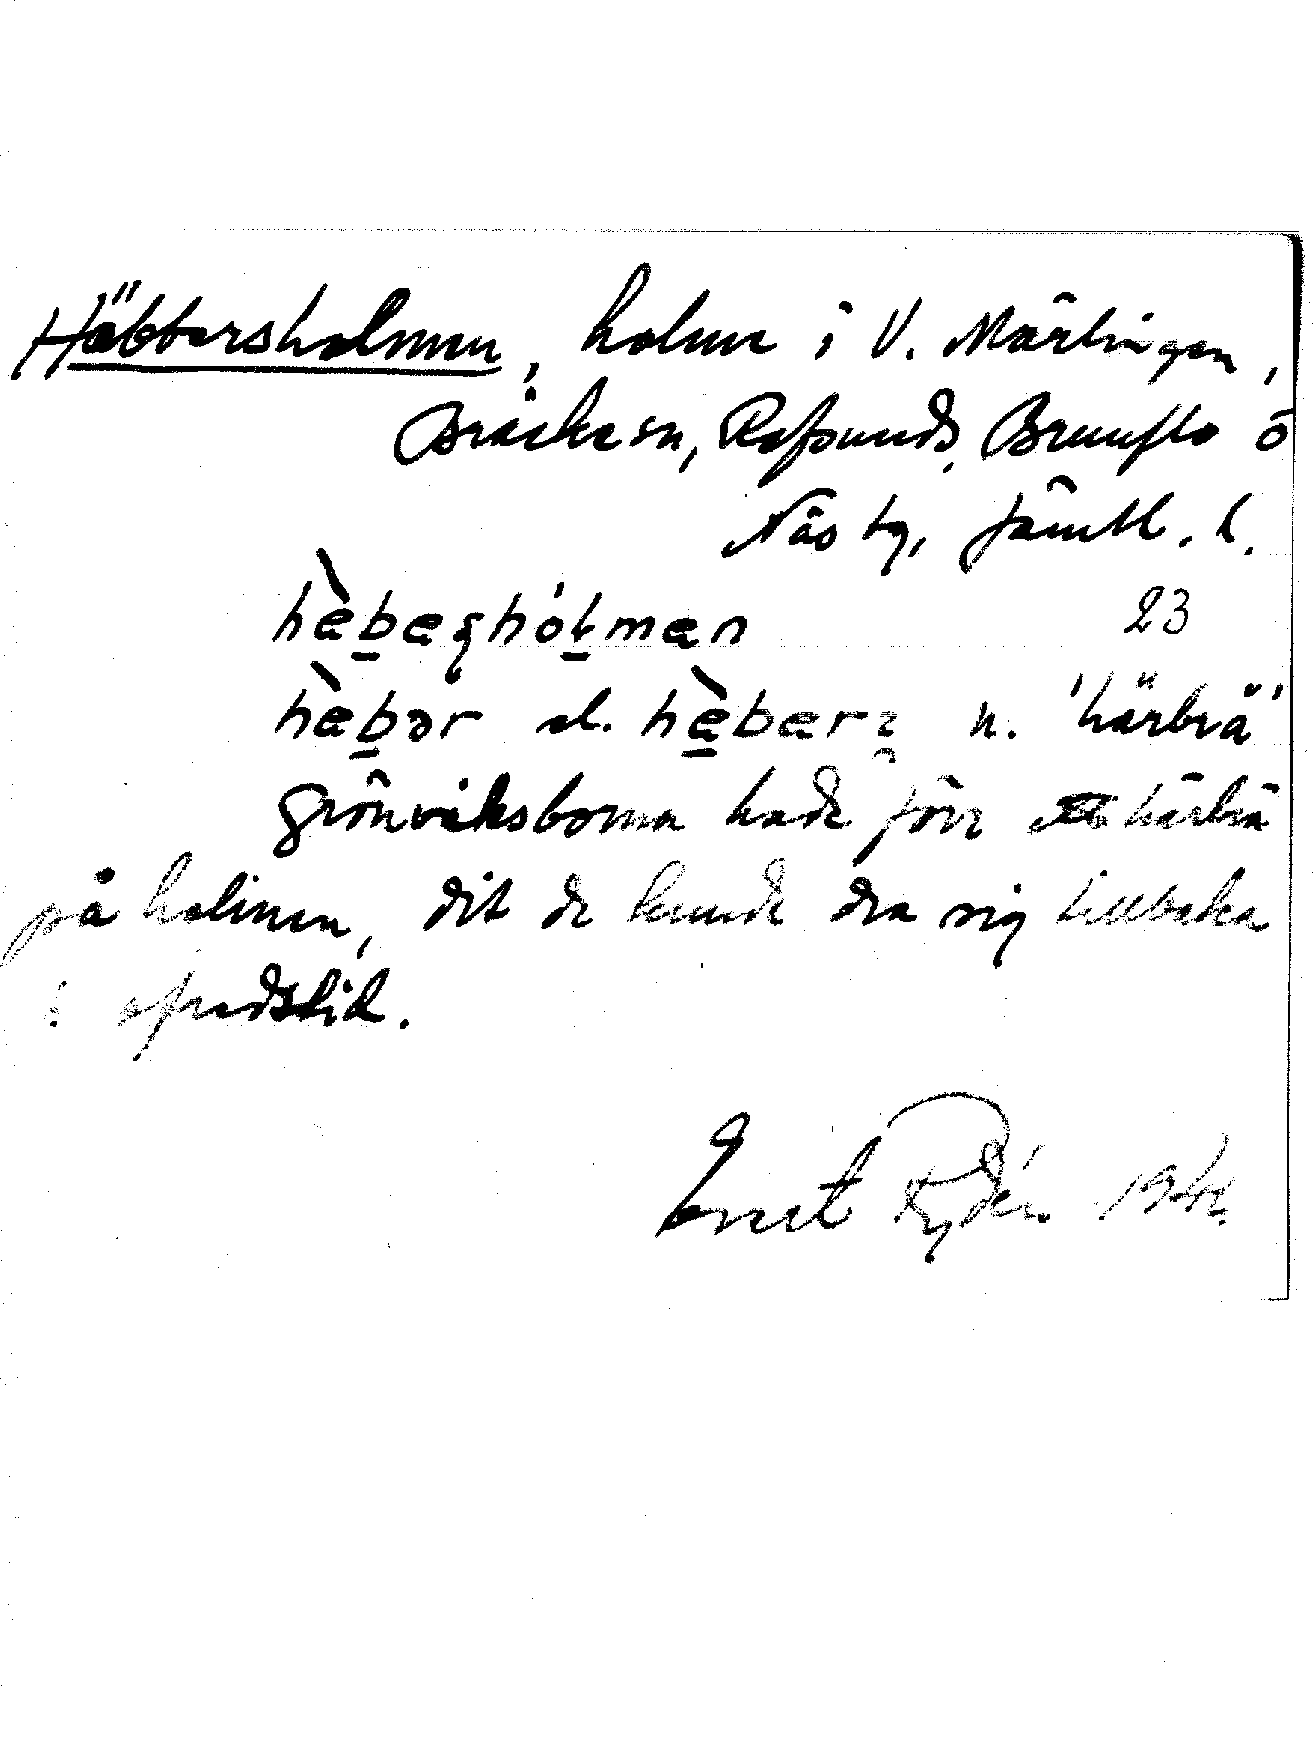 Häbbersholmen, holme i V. Mårtingen,
Bräcke sn, Refsunds, Brunflo o
Näs tg, Jämtl. l.
hæ̀bæʂhólmæn 23
hæ̀bər el. hæ̀bær n. 'härbrä'
Grönviksborna hade förr ett härbrä
på holmen, dit de kunde dra sig tillbaka
i ofredstid.
Ernst Rydén 1941.